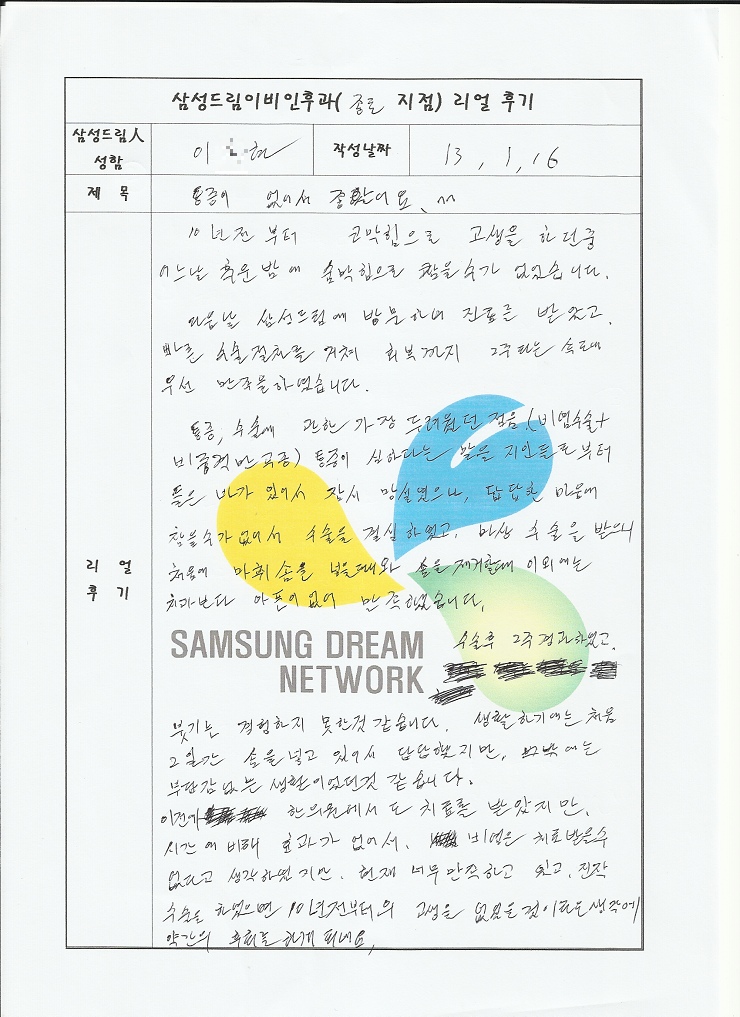 삼성드림이비인후과( 종로 지점) 리얼 후기
삼성드림人 성함
이 현
작성날짜
13, 1, 16
제 목
통증이 없어서 좋았어요, ^^
리 얼 후 기
10년전부터 코막힘으로 고생을 하던중
어느날 추운밤에 숨막힘으로 참을수가 없었습니다.
다음날 삼성드림에 방문하여 진료를 받았고,
빠른 수술절차를 거쳐 회복까지 2주라는 속도에
우선 만족을하였습니다.
통증, 수술에 관한 가장 두려웠던 점음.(비염수술+
비중격만곡증) 통증이 심하다는 말을 지인들로부터
들은 바가 있어서 잠시 망설였으나, 답답한 마음에
참을수가없어서 수술을 결심하였고. 막상 수술을 받으니
처음에 마취솜을 넣을때와 솜을제거할때 이외에는
치과보다 아픔이없어 만족했습니다.
SAMSUNG DREAM
NETWORK
수술후 2주경과하였고.
붓기는 경험하지 못한것 같습니다. 생활하기에는 처음
2일간 솜을넣고 있어서 답답했지만, 그밖에는
부담감없는 생활이었던것 같습니다.
이전에 한의원에서도 치료를 받았지만,
시간에 비해 효과가 없어서, 비염은 치료받을수
없다고 생각하였지만. 현재 너무만족하고 있고, 진작
수술을 하였으면 10년전부터의 고생을 없었을것이라는생각에
약간의 후회를하게 되네요,